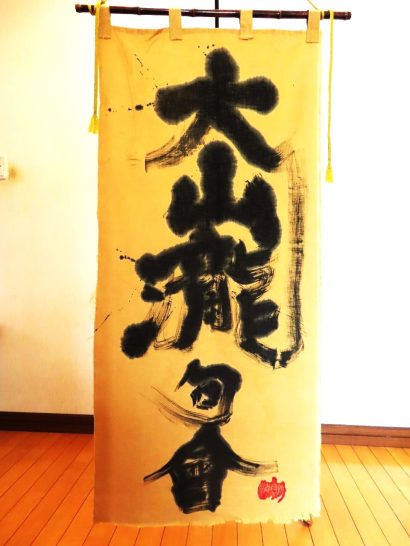 大山瀧句會